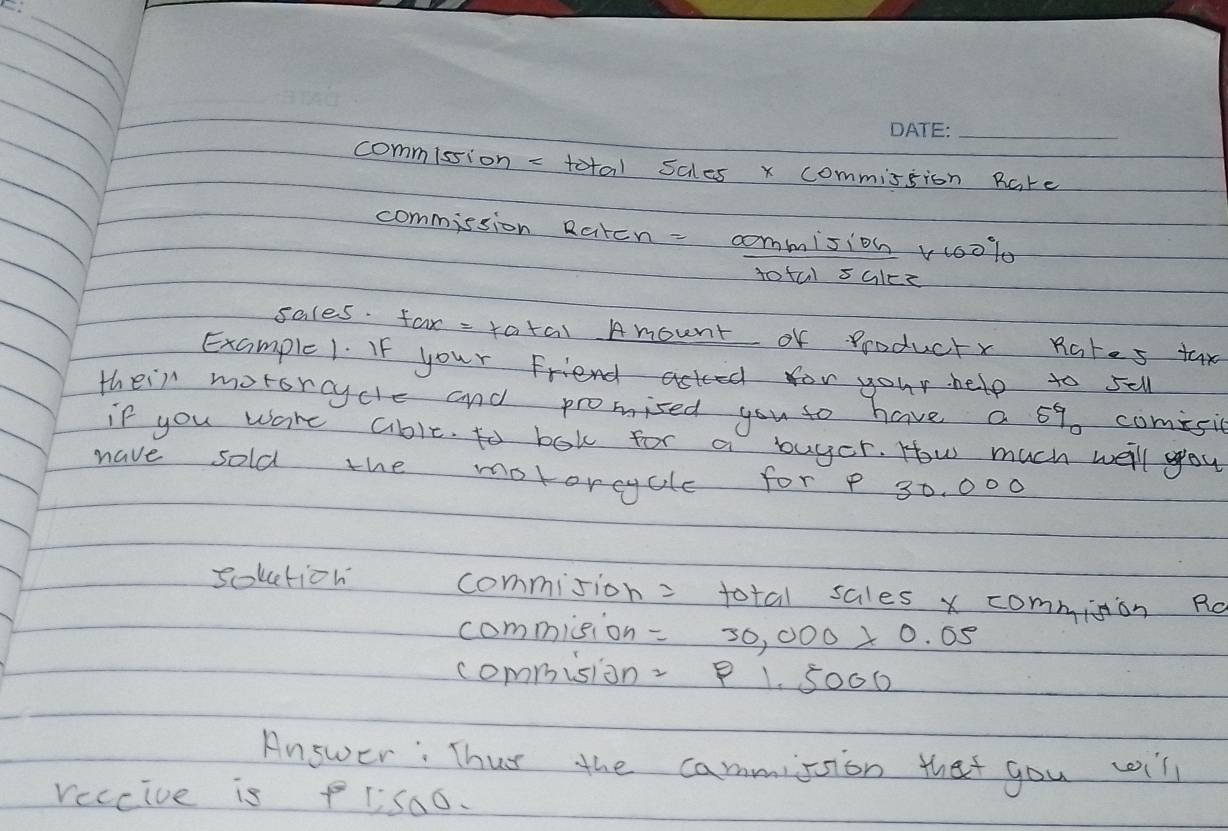 DATE:
commission = total Sales x commission Rate
commission Raten = commision x 100%
total sales
sales. tax = total Amount of Product x Rates tax
Example 1. If your Friend acked for your help to sell
their motoraycle and promised you to have a 5% comissi
if you ware able. to bok for a buyer. How much weill you
have sold the motorcycle for ₱ 30.000
solution commision = total sales x commision Ra
commision = 30,000 x 0.05
commision = ₱ 1.5000
Answer: Thus the commission that you will
receive is ₱ 1:500.